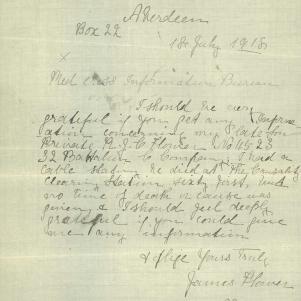 Aberdeen
Box 22
18 July 1918
x
Red Cross Information Bureau
I should be very
grateful if you get any inform
ation concerning my late son
Private R J C Flower No
32 Battalion C Company. I had a
cable stating he died at the Casualty
Clearing Station, sixty first, but
no time of death or cause was
given, & I should feel deeply
grateful if you could give
me any information
& oblige Yours Truly
James Flower